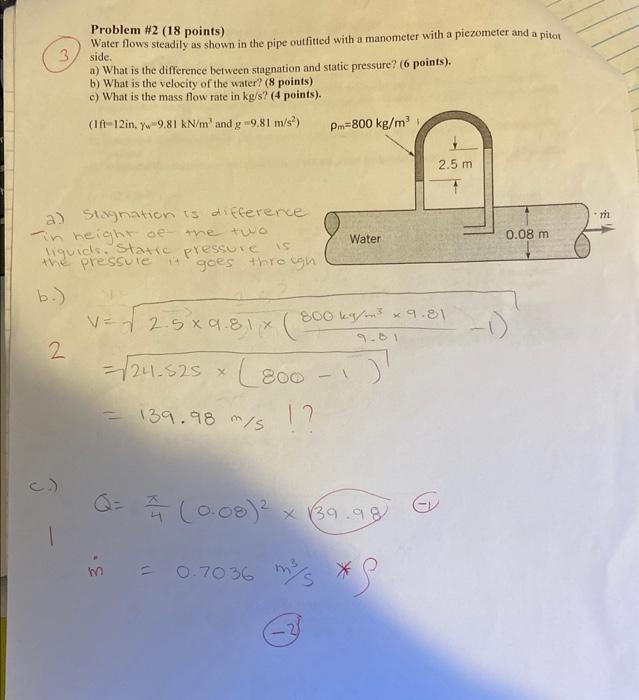 Problem #2 (18 points)
3
Water flows steadily as shown in the pipe outfitted with a manometer with a piezometer and a pitot
side.
a) What is the difference between stagnation and static pressure? (6 points).
b) What is the velocity of the water? (8 points)
c) What is the mass flow rate in kg/s? (4 points).
(1ft=12in, γw=9.81 kN/m³ and g =9.81 m/s²)
ρm=800 kg/m³
2.5 m
Water
0.08 m
ṁ
a.) Stagnation is difference
in height of the two
liquids. Static pressure is
the pressure it goes through
b.)
V = √2.5 x 9.81 x (800 kg/m³ x 9.81 / 9.81 - 1)
2
= √24.525 x (800 - 1)
= 139.98 m/s !?
c.)
Q = π/4 (0.08)² x 139.98 -1
1
ṁ = 0.7036 m³/s * ρ
-2